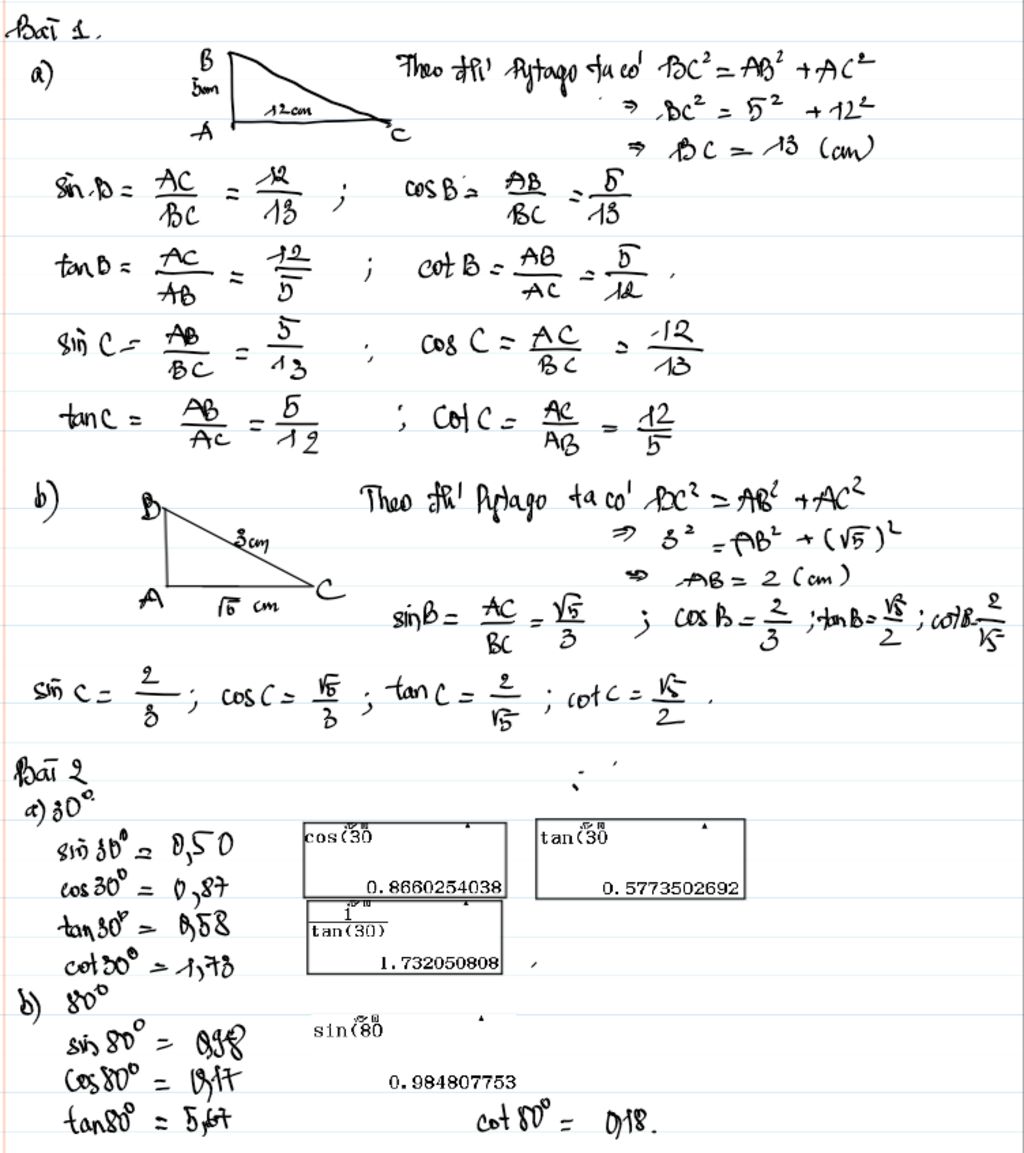 Bài 1.
a)
B
5cm
12cm
A
C
Theo đl Pytago ta có BC² = AB² + AC²
⇒ BC² = 5² + 12²
⇒ BC = 13 (cm)
sin B = AC/BC = 12/13 ; cos B = AB/BC = 5/13
tan B = AC/AB = 12/5 ; cot B = AB/AC = 5/12 .
sin C = AB/BC = 5/13 ; cos C = AC/BC = 12/13
tan C = AB/AC = 5/12 ; cot C = AC/AB = 12/5
b)
B
3cm
A
√5 cm
C
Theo đl Pytago ta có BC² = AB² + AC²
⇒ 3² = AB² + (√5)²
⇒ AB = 2 (cm)
sin B = AC/BC = √5/3 ; cos B = 2/3 ; tan B = √5/2 ; cot B = 2/√5
sin C = 2/3 ; cos C = √5/3 ; tan C = 2/√5 ; cot C = √5/2 .
Bài 2
a) 30°
sin 30° = 0,50
cos 30° = 0,87
tan 30° = 0,58
cot 30° = 1,73
cos(30
0.8660254038
tan(30
0.5773502692
1/tan(30)
1.732050808
b) 80°
sin 80° = 0,98
cos 80° = 0,17
tan 80° = 5,67
sin(80
0.984807753
cot 80° = 0,18.